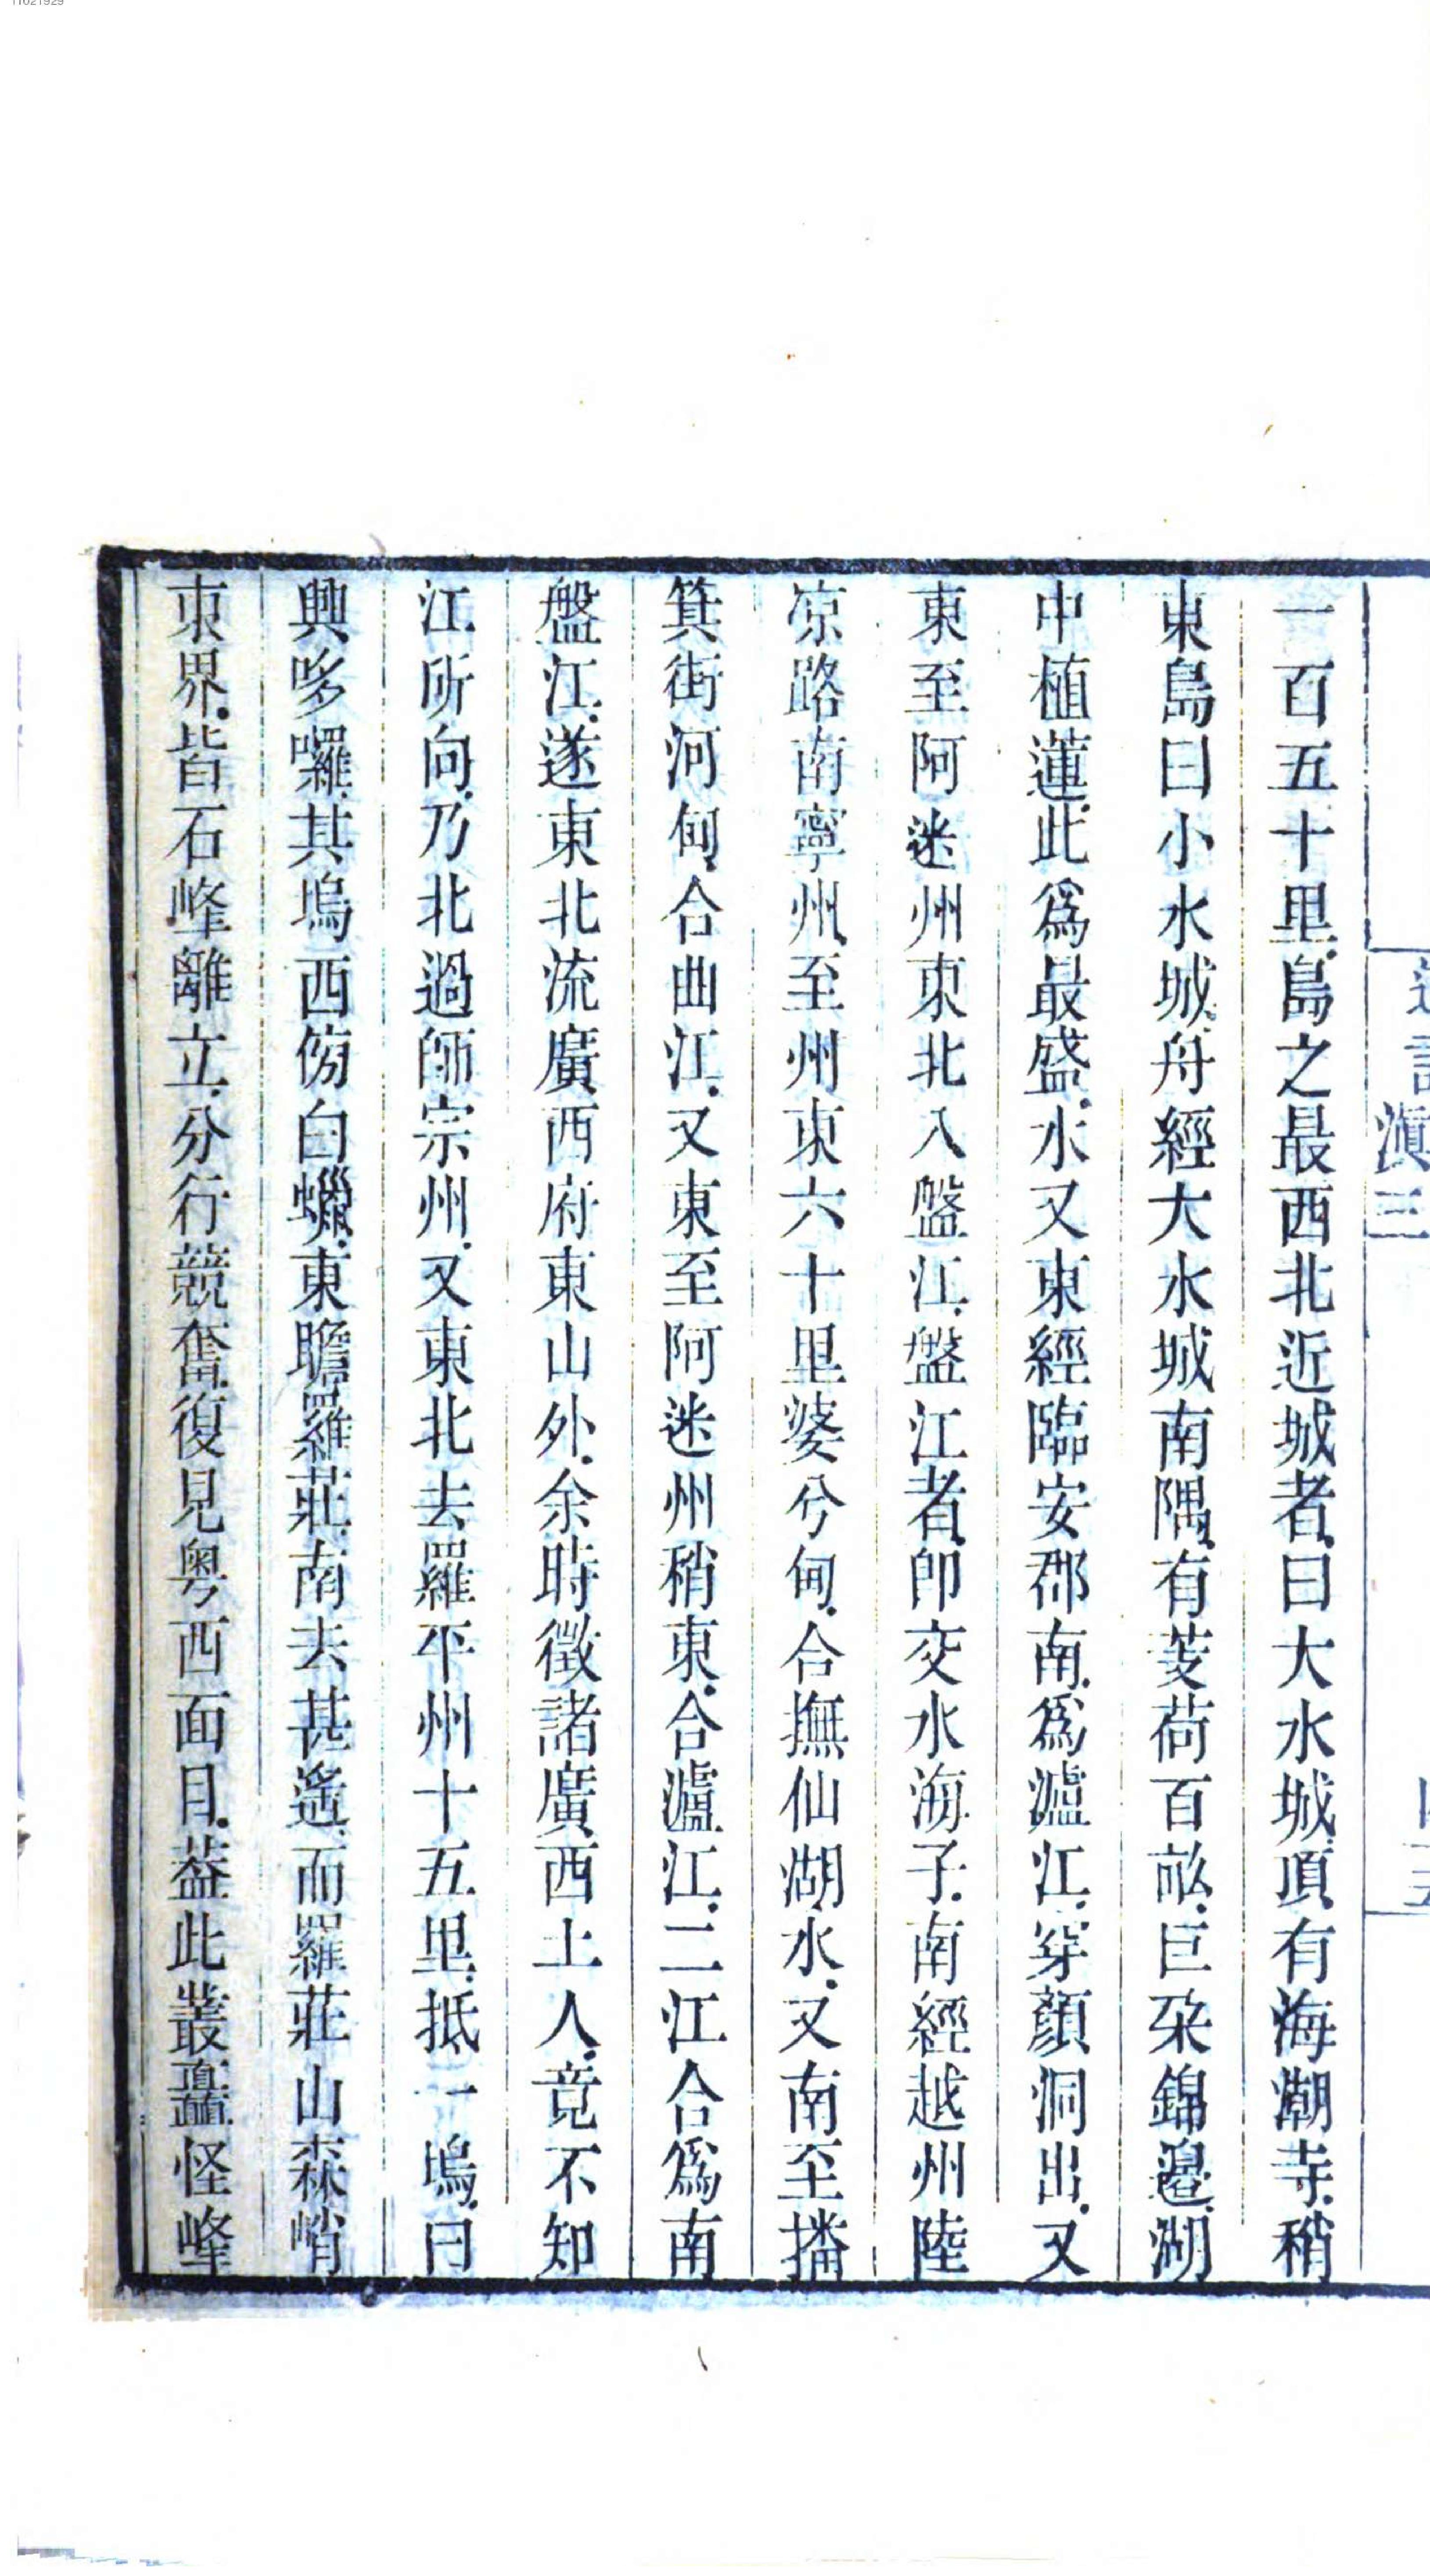 一百五十里島之最西北近城者曰大水城頂有海潮寺稍
東島曰小水城舟經大水城南隅有菱荷百畝巨朶錦邉湖
中植蓮此爲最盛水又東經臨安郡南爲瀘江穿顏洞出又
東至阿迷州東北入盤江盤江者卽交水海子南經越州陸
凉路南寧州至州東六十里婆兮甸合撫仙湖水又南至播
箕街河甸合曲江又東至阿迷州稍東合瀘江二江合爲南
盤江遂東北流廣西府東山外余時徵諸廣西土人竟不知
江所向乃北過師宗州又東北去羅平州十五里抵一塢曰
興哆囉其塢西傍白蠟東瞻羅莊南去甚遙而羅莊山森峭
東界皆石峰離立分行競奮復見粤西面目葢此叢矗怪峰
滇三